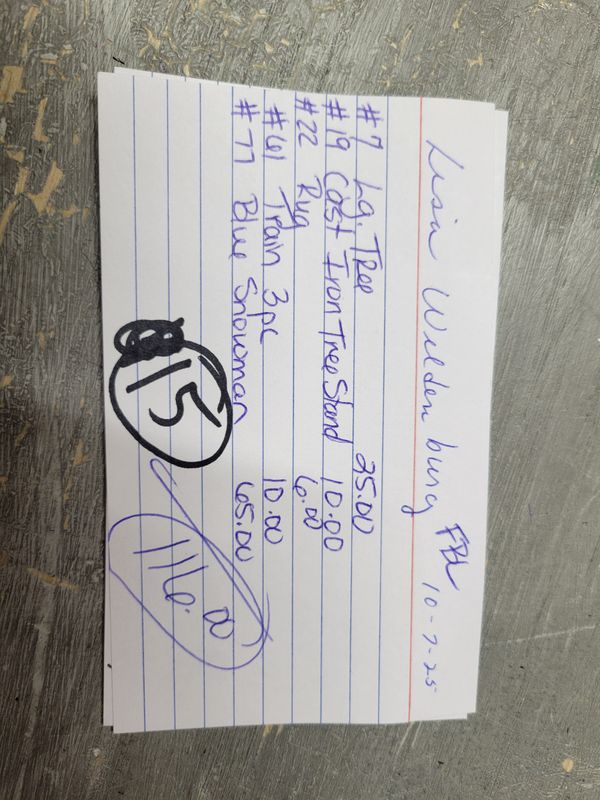 Lisa Wildenburg FBL 10-7-25
#7 Lg. Tree 25.00
#19 Cast Iron Tree Stand 10.00
#22 Rug 6.00
#61 Train 3pc 10.00
#77 Blue Snowman 65.00
15
116.00